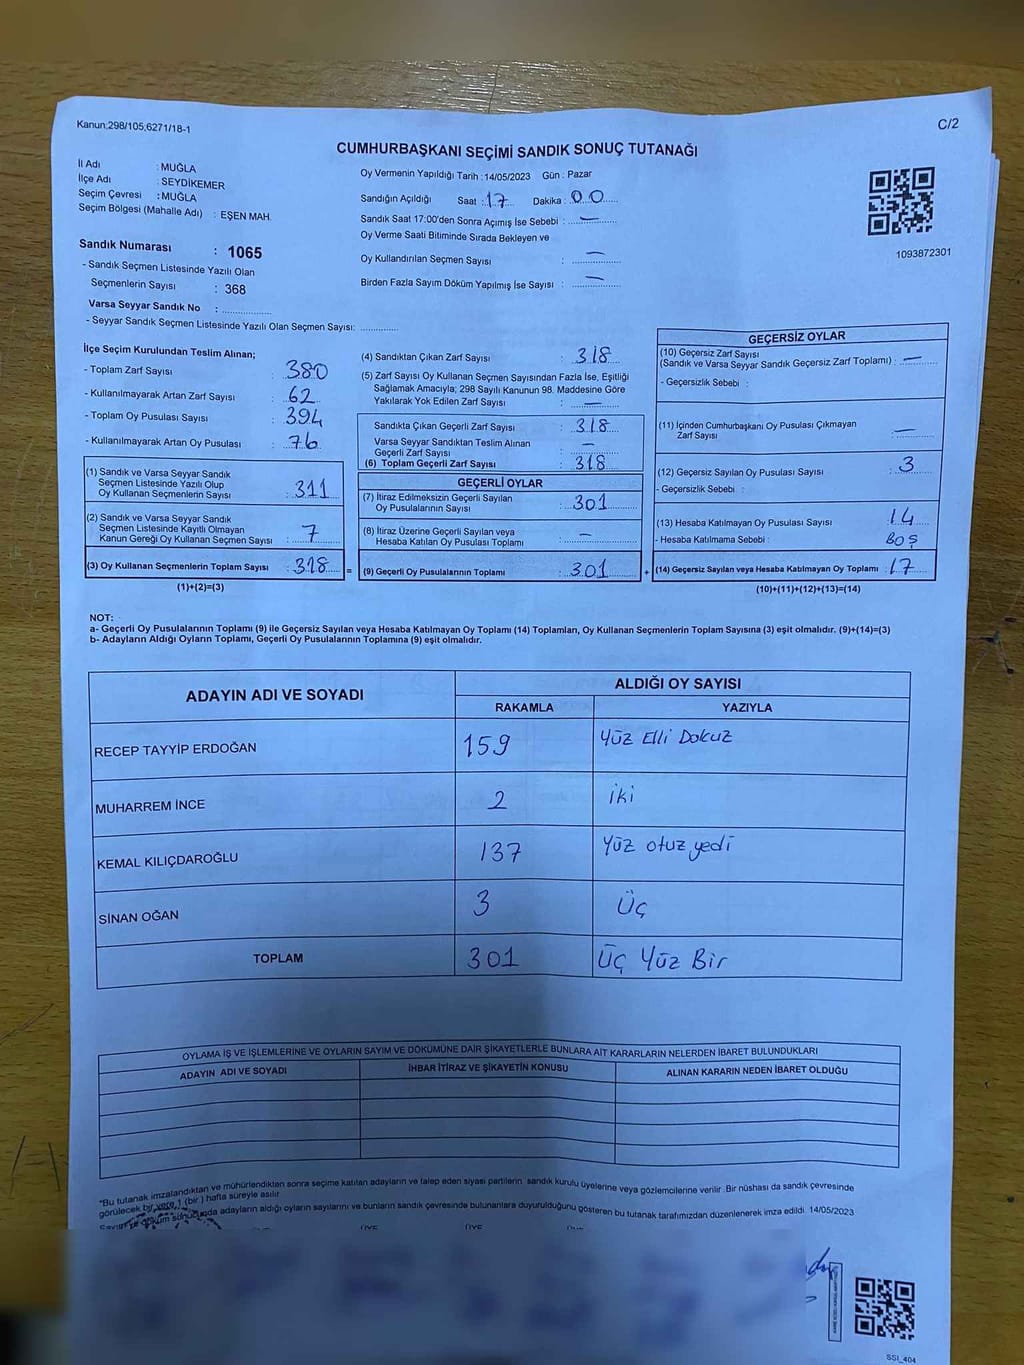 Kanun;298/105;6271/18-1
C/2
CUMHURBAŞKANI SEÇİMİ SANDIK SONUÇ TUTANAĞI
İl Adı : MUĞLA
İlçe Adı : SEYDİKEMER
Seçim Çevresi : MUĞLA
Seçim Bölgesi (Mahalle Adı) : EŞEN MAH.
Sandık Numarası : 1065
- Sandık Seçmen Listesinde Yazılı Olan
Seçmenlerin Sayısı : 368
Varsa Seyyar Sandık No :
- Seyyar Sandık Seçmen Listesinde Yazılı Olan Seçmen Sayısı:
Oy Vermenin Yapıldığı Tarih : 14/05/2023 Gün : Pazar
Sandığın Açıldığı Saat : 17 Dakika : 00
Sandık Saat 17:00'den Sonra Açımış İse Sebebi : —
Oy Verme Saati Bitiminde Sırada Bekleyen ve
Oy Kullandırılan Seçmen Sayısı : —
Birden Fazla Sayım Döküm Yapılmış İse Sayısı : —
1093872301
İlçe Seçim Kurulundan Teslim Alınan;
- Toplam Zarf Sayısı : 380
- Kullanılmayarak Artan Zarf Sayısı : 62
- Toplam Oy Pusulası Sayısı : 394
- Kullanılmayarak Artan Oy Pusulası : 76
(1) Sandık ve Varsa Seyyar Sandık
Seçmen Listesinde Yazılı Olup
Oy Kullanan Seçmenlerin Sayısı : 311
(2) Sandık ve Varsa Seyyar Sandık
Seçmen Listesinde Kayıtlı Olmayan
Kanun Gereği Oy Kullanan Seçmen Sayısı : 7
(3) Oy Kullanan Seçmenlerin Toplam Sayısı : 318
(1)+(2)=(3)
(4) Sandıktan Çıkan Zarf Sayısı : 318
(5) Zarf Sayısı Oy Kullanan Seçmen Sayısından Fazla İse, Eşitliği
Sağlamak Amacıyla; 298 Sayılı Kanunun 98. Maddesine Göre
Yakılarak Yok Edilen Zarf Sayısı : —
Sandıkta Çıkan Geçerli Zarf Sayısı : 318
Varsa Seyyar Sandıktan Teslim Alınan
Geçerli Zarf Sayısı : —
(6) Toplam Geçerli Zarf Sayısı : 318
GEÇERLİ OYLAR
(7) İtiraz Edilmeksizin Geçerli Sayılan
Oy Pusulalarının Sayısı : 301
(8) İtiraz Üzerine Geçerli Sayılan veya
Hesaba Katılan Oy Pusulası Toplamı : —
= (9) Geçerli Oy Pusulalarının Toplamı : 301
GEÇERSİZ OYLAR
(10) Geçersiz Zarf Sayısı
(Sandık ve Varsa Seyyar Sandık Geçersiz Zarf Toplamı) : —
- Geçersizlik Sebebi :
(11) İçinden Cumhurbaşkanı Oy Pusulası Çıkmayan
Zarf Sayısı : —
(12) Geçersiz Sayılan Oy Pusulası Sayısı : 3
- Geçersizlik Sebebi :
(13) Hesaba Katılmayan Oy Pusulası Sayısı : 14
- Hesaba Katılmama Sebebi : BOŞ
+ (14) Geçersiz Sayılan veya Hesaba Katılmayan Oy Toplamı : 17
(10)+(11)+(12)+(13)=(14)
NOT:
a- Geçerli Oy Pusulalarının Toplamı (9) ile Geçersiz Sayılan veya Hesaba Katılmayan Oy Toplamı (14) Toplamları, Oy Kullanan Seçmenlerin Toplam Sayısına (3) eşit olmalıdır. (9)+(14)=(3)
b- Adayların Aldığı Oyların Toplamı, Geçerli Oy Pusulalarının Toplamına (9) eşit olmalıdır.
ADAYIN ADI VE SOYADI ALDIĞI OY SAYISI
RAKAMLA YAZIYLA
RECEP TAYYİP ERDOĞAN 159 Yüz Elli Dokuz
MUHARREM İNCE 2 iki
KEMAL KILIÇDAROĞLU 137 Yüz otuz yedi
SİNAN OĞAN 3 Üç
TOPLAM 301 Üç Yüz Bir
OYLAMA İŞ VE İŞLEMLERİNE VE OYLARIN SAYIM VE DÖKÜMÜNE DAİR ŞİKAYETLERLE BUNLARA AİT KARARLARIN NELERDEN İBARET BULUNDUKLARI
ADAYIN ADI VE SOYADI İHBAR İTİRAZ VE ŞİKAYETİN KONUSU ALINAN KARARIN NEDEN İBARET OLDUĞU
"Bu tutanak imzalandıktan ve mühürlendikten sonra seçime katılan adayların ve talep eden siyasi partilerin sandık kurulu üyelerine veya gözlemcilerine verilir. Bir nüshası da sandık çevresinde
görülecek bir yere 1 (bir ) hafta süreyle asılır.
adayların aldığı oyların sayılarını ve bunların sandık çevresinde bulunanlara duyurulduğunu gösteren bu tutanak tarafımızdan düzenlenerek imza edildi. 14/05/2023
ÜYE ÜYE
SSI_404